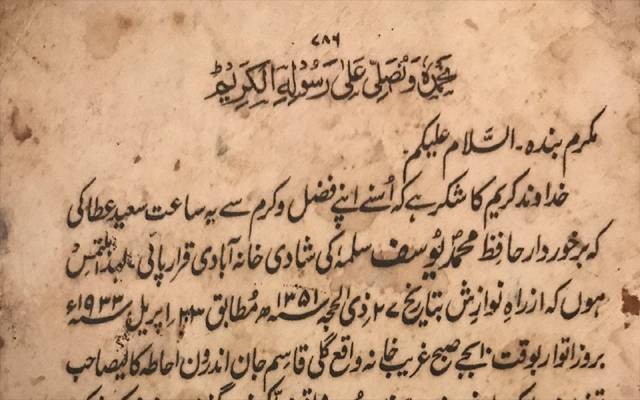 ۷۸۶
نَحْمَدُہٗ وَنُصَلِّی عَلٰی رَسُوْلِہِ الْکَرِیْمِ
مکرم بندہ۔ السَّلام علیکم۔
خداوند کریم کا شکر ہے کہ اُسنے اپنے فضل و کرم سے یہ ساعت سعید عطا کی
کہ برخوردار حافظ محمدُ یُوسف سلمہٗ کی شادی خانہ آبادی قرار پائی۔ لہٰذا ملتمس
ہوں کہ از راہِ نوازِش بتاریخ ۲۷ ذی الحجہ ۱۳۵۱ سنہ ھ مُطابق ۲۳ اپریل ۱۹۳۳ سنہ ء
بروز اتوار بوقت ۱۰ بجے صبح غریب خانہ واقع گلی قاسِم جان اندرون احاطہ کالیصاحب